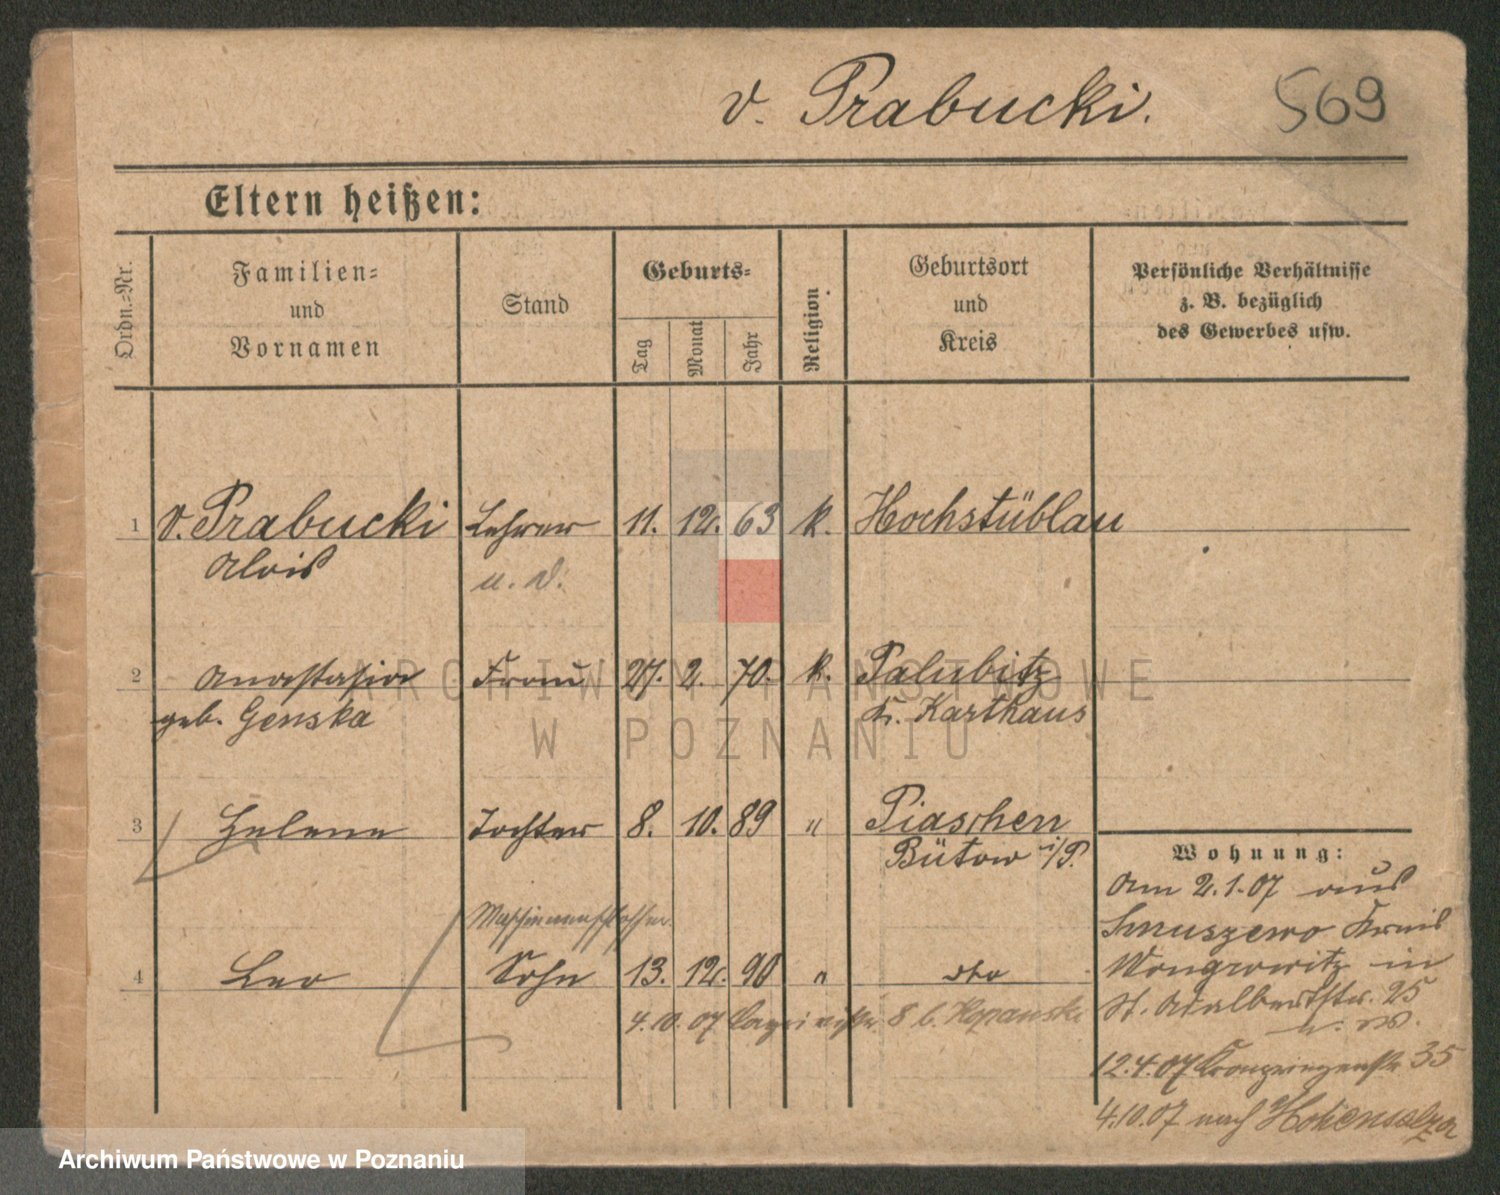 v. Prabucki.
569
Eltern heißen:
Ordn.=Nr.
Familien=
und
Vornamen
Stand
Geburts=
Tag
Monat
Jahr
Religion
Geburtsort
und
Kreis
Persönliche Verhältnisse
z. B. bezüglich
des Gewerbes usw.
1 v. Prabucki Lehrer 11. 12. 63 k. Hochstüblau
Alois
2 Anastasia Frau 27. 2. 70. k. Palubitz
geb. Genska Kr. Karthaus
3 Helene Tochter 8. 10. 89 " Piaschen
Bütow i/P.
Maschinenschlosser
4 Leo Sohn 13. 12. 90 " dto
4.10.07 8 b.
Wohnung:
Am 2.1.07 aus
Smuszewo Kreis
Wongrowitz in
St. Adalbertstr. 25
12.4.07 Kronprinzenstr 35
4.10.07 nach Hohensalza
ARCHIWUM PAŃSTWOWE
W POZNANIU
Archiwum Państwowe w Poznaniu